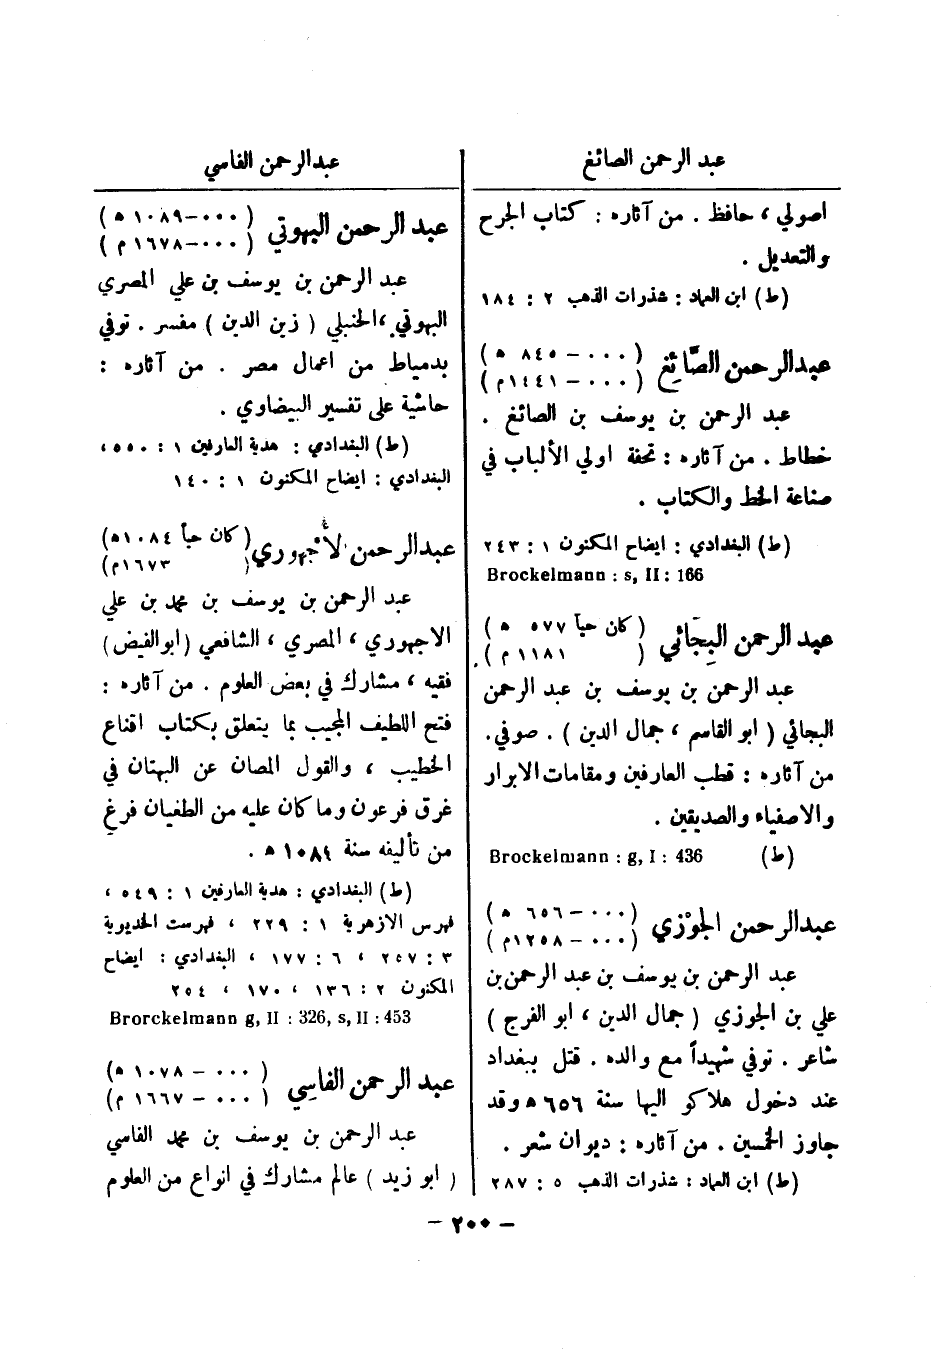 عبد الرحمن الصائغ
اصولي ، حافظ . من آثاره : كتاب الجرح
والتعديل .
(ط) ابن العماد : شذرات الذهب ٢ : ١٨٤
عبدالرحمن الصَّائِغ (٠٠٠ – ٨٤٥ ه)
(٠٠٠ – ١٤٤١م)
عبد الرحمن بن يوسف بن الصائغ .
خطاط . من آثاره : تحفة اولي الألباب في
صناعة الخط والكتاب .
(ط) البغدادي : ايضاح المكنون ١ : ٢٤٣
Brockelmann : s, II : 166
عبد الرحمن البِجَائي (كان حياً ٥٧٧ ه)
(١١٨١ م)
عبد الرحمن بن يوسف بن عبد الرحمن
البجائي ( ابو القاسم ، جمال الدين ) . صوفي.
من آثاره : قطب العارفين ومقامات الابرار
والاصفياء والصديقين .
(ط) Brockelmann : g, I : 436
عبدالرحمن الجَوْزي (٠٠٠ – ٦٥٦ ه)
(٠٠٠ – ١٢٥٨م)
عبد الرحمن بن يوسف بن عبد الرحمن بن
علي بن الجوزي ( جمال الدين ، ابو الفرج )
شاعر . توفي شهيداً مع والده . قتل ببغداد
عند دخول هلاكو اليها سنة ٦٥٦ ه وقد
جاوز الخمسين . من آثاره : ديوان شعر .
(ط) ابن العماد : شذرات الذهب ٥ : ٢٨٧
عبدالرحمن الفاسي
عبد الرحمن البهوتي (٠٠٠–١٠٨٩ ه)
(٠٠٠–١٦٧٨ م)
عبد الرحمن بن يوسف بن علي المصري
البهوتي ،الحنبلي ( زين الدين ) مفسر . توفي
بدمياط من اعمال مصر . من آثاره :
حاشية على تفسير البيضاوي .
(ط) البغدادي : هدية العارفين ١ : ٥٥٠ ،
البغدادي : ايضاح المكنون ١ : ١٤٠
عبدالرحمن الأجْهوري (كان حياً ١٠٨٤ه)
(١٦٧٣م)
عبد الرحمن بن يوسف بن محمد بن علي
الاجهوري ، المصري ، الشافعي (ابو الفيض)
فقيه ، مشارك في بعض العلوم . من آثاره :
فتح اللطيف المجيب بما يتعلق بكتاب اقناع
الخطيب ، والقول المصان عن البهتان في
غرق فرعون وما كان عليه من الطغيان فرغ
من تأليفه سنة ١٠٨٤ ه .
(ط) البغدادي : هدية العارفين ١ : ٥٤٩ ،
فهرس الازهرية ١ : ٢٢٩ ، فهرست الخديوية
٣ : ٢٥٧ ، ٦ : ١٧٧ ، البغدادي : ايضاح
المكنون ٢ : ١٣٦ ، ١٧٠ ، ٢٥٤
Brorckelmann g, II : 326, s, II : 453
عبد الرحمن الفاسِي (٠٠٠ – ١٠٧٨ ه)
(٠٠٠ – ١٦٦٧ م)
عبد الرحمن بن يوسف بن محمد الفاسي
( ابو زيد ) عالم مشارك في انواع من العلوم
– ٢٠٠ –